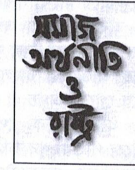 সমাজ
অর্থনীতি
ও
রাষ্ট্র